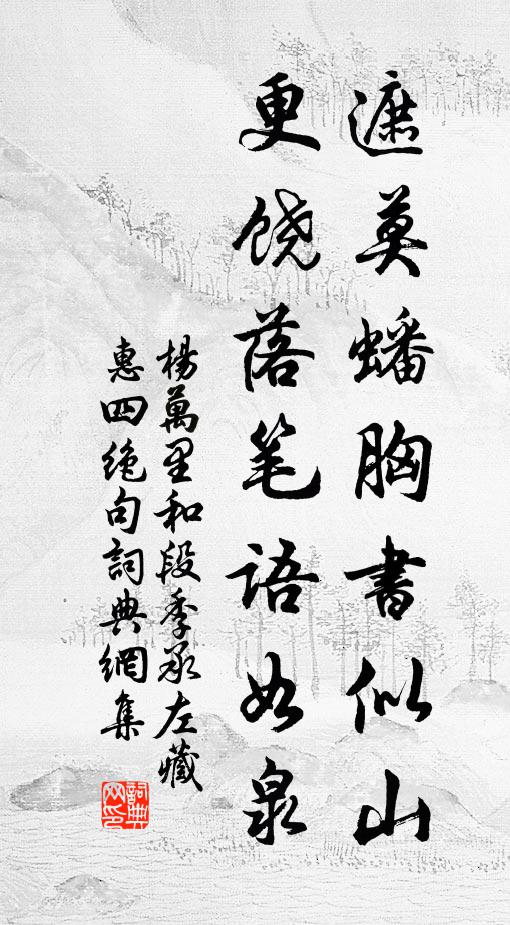 遮莫蟠胸書似山
更饶落笔语如泉
楊萬里和段季承左藏
惠四绝句詞典網集
詞典
网印